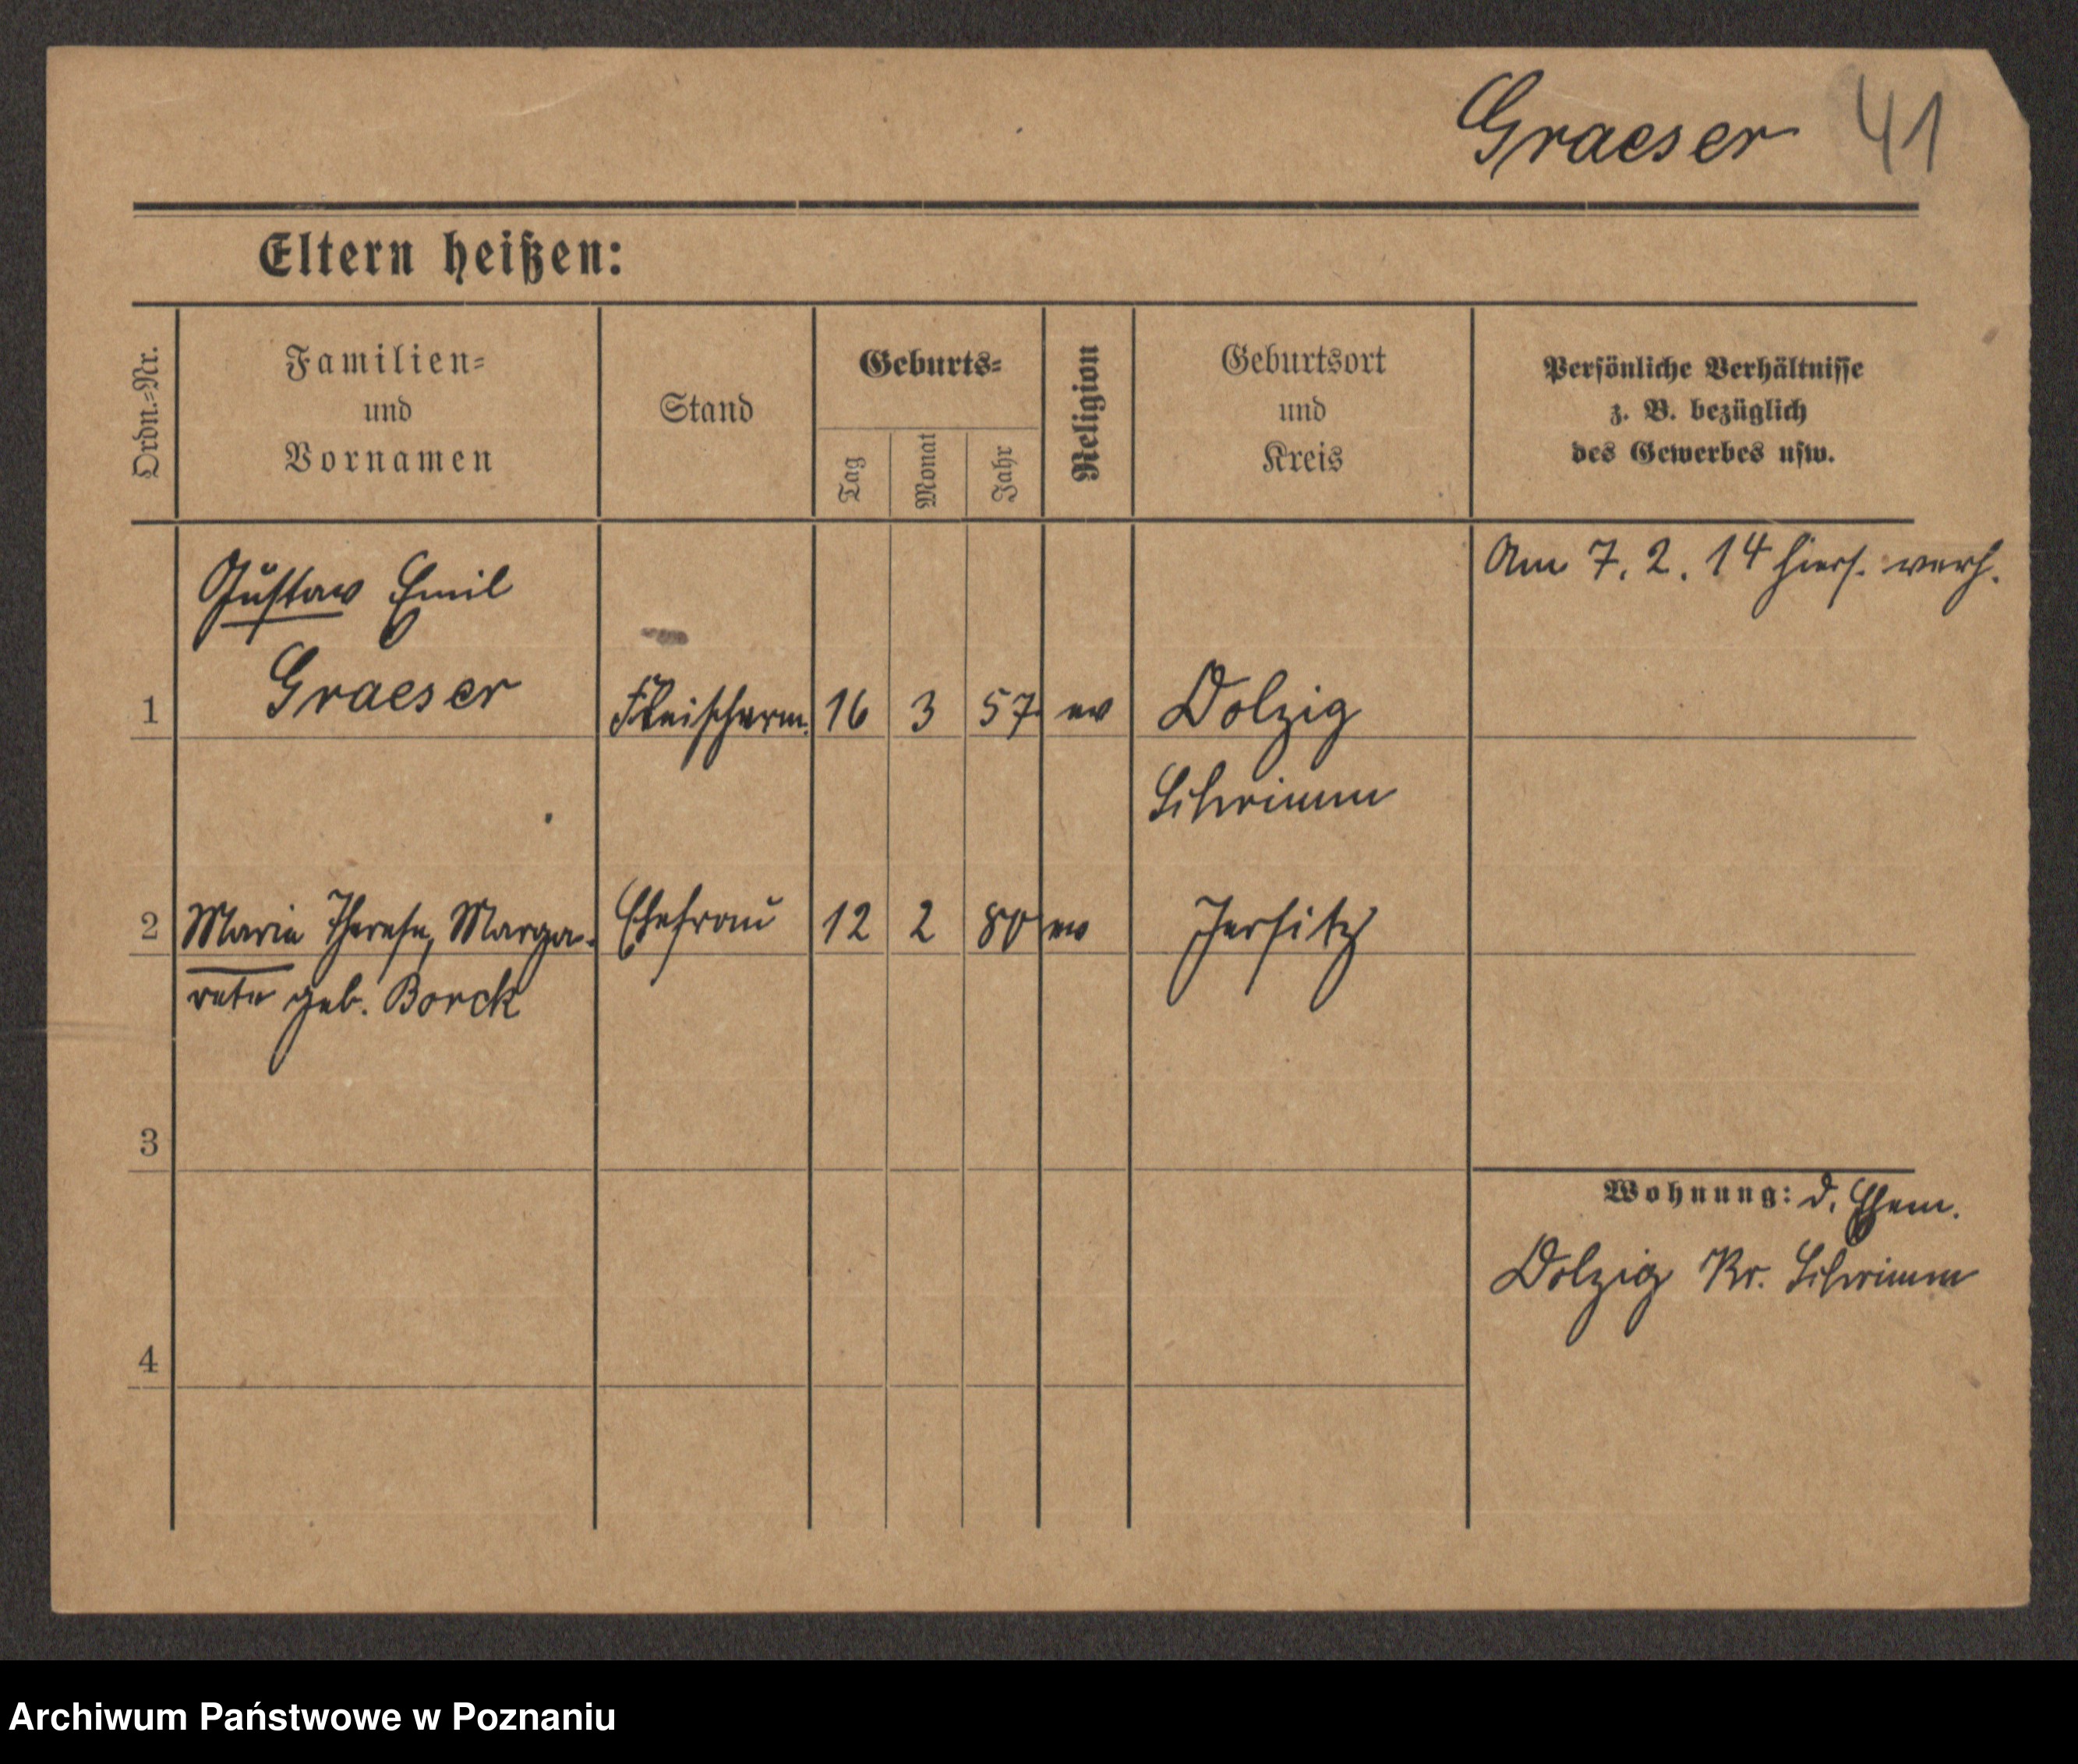 Graeser 41
Eltern heißen:
Ordn.-Nr.
Familien-
und
Vornamen
Stand
Geburts-
Tag
Monat
Jahr
Religion
Geburtsort
und
Kreis
Persönliche Verhältnisse
z. B. bezüglich
des Gewerbes usw.
Am 7. 2. 14 hiers. verh.
Gustav Emil
1 Graeser Fleischerm. 16 3 57 ev Dolzig
Schrimm
2 Marie Therese, Marga- Ehefrau 12 2 80 ev Jersitz
rete geb. Borck
3
Wohnung: d. Ehem.
Dolzig Kr. Schrimm
4
Archiwum Państwowe w Poznaniu